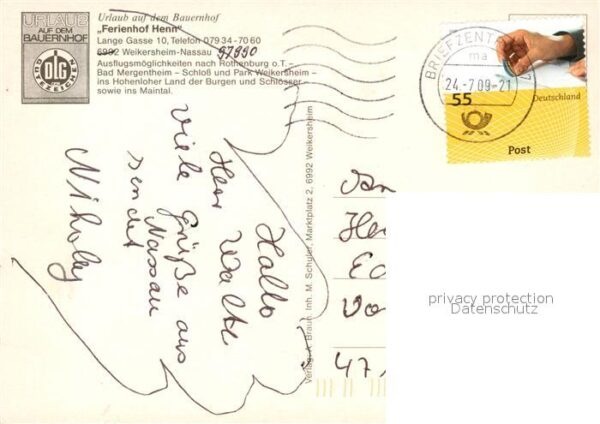 URLAUB
AUF DEM
BAUERNHOF
DLG
GÜTEZEICHEN
Urlaub auf dem Bauernhof
„Ferienhof Henn"
Lange Gasse 10, Telefon 0 79 34 - 70 60
6992 Weikersheim-Nassau 97990
Ausflugsmöglichkeiten nach Rothenburg o.T. –
Bad Mergentheim – Schloß und Park Weikersheim –
ins Hohenloher Land der Burgen und Schlösser –
sowie ins Maintal.
Hallo
Herr Walte
viele Grüße aus
Nassau
sendet
Verlag A. Braun, Inh. M. Schuler, Marktplatz 2, 6992 Weikersheim
BRIEFZENTRUM
ma
24.-7.09-21
55
Deutschland
Post
An
He
Ec
Vo
47
privacy protection
Datenschutz